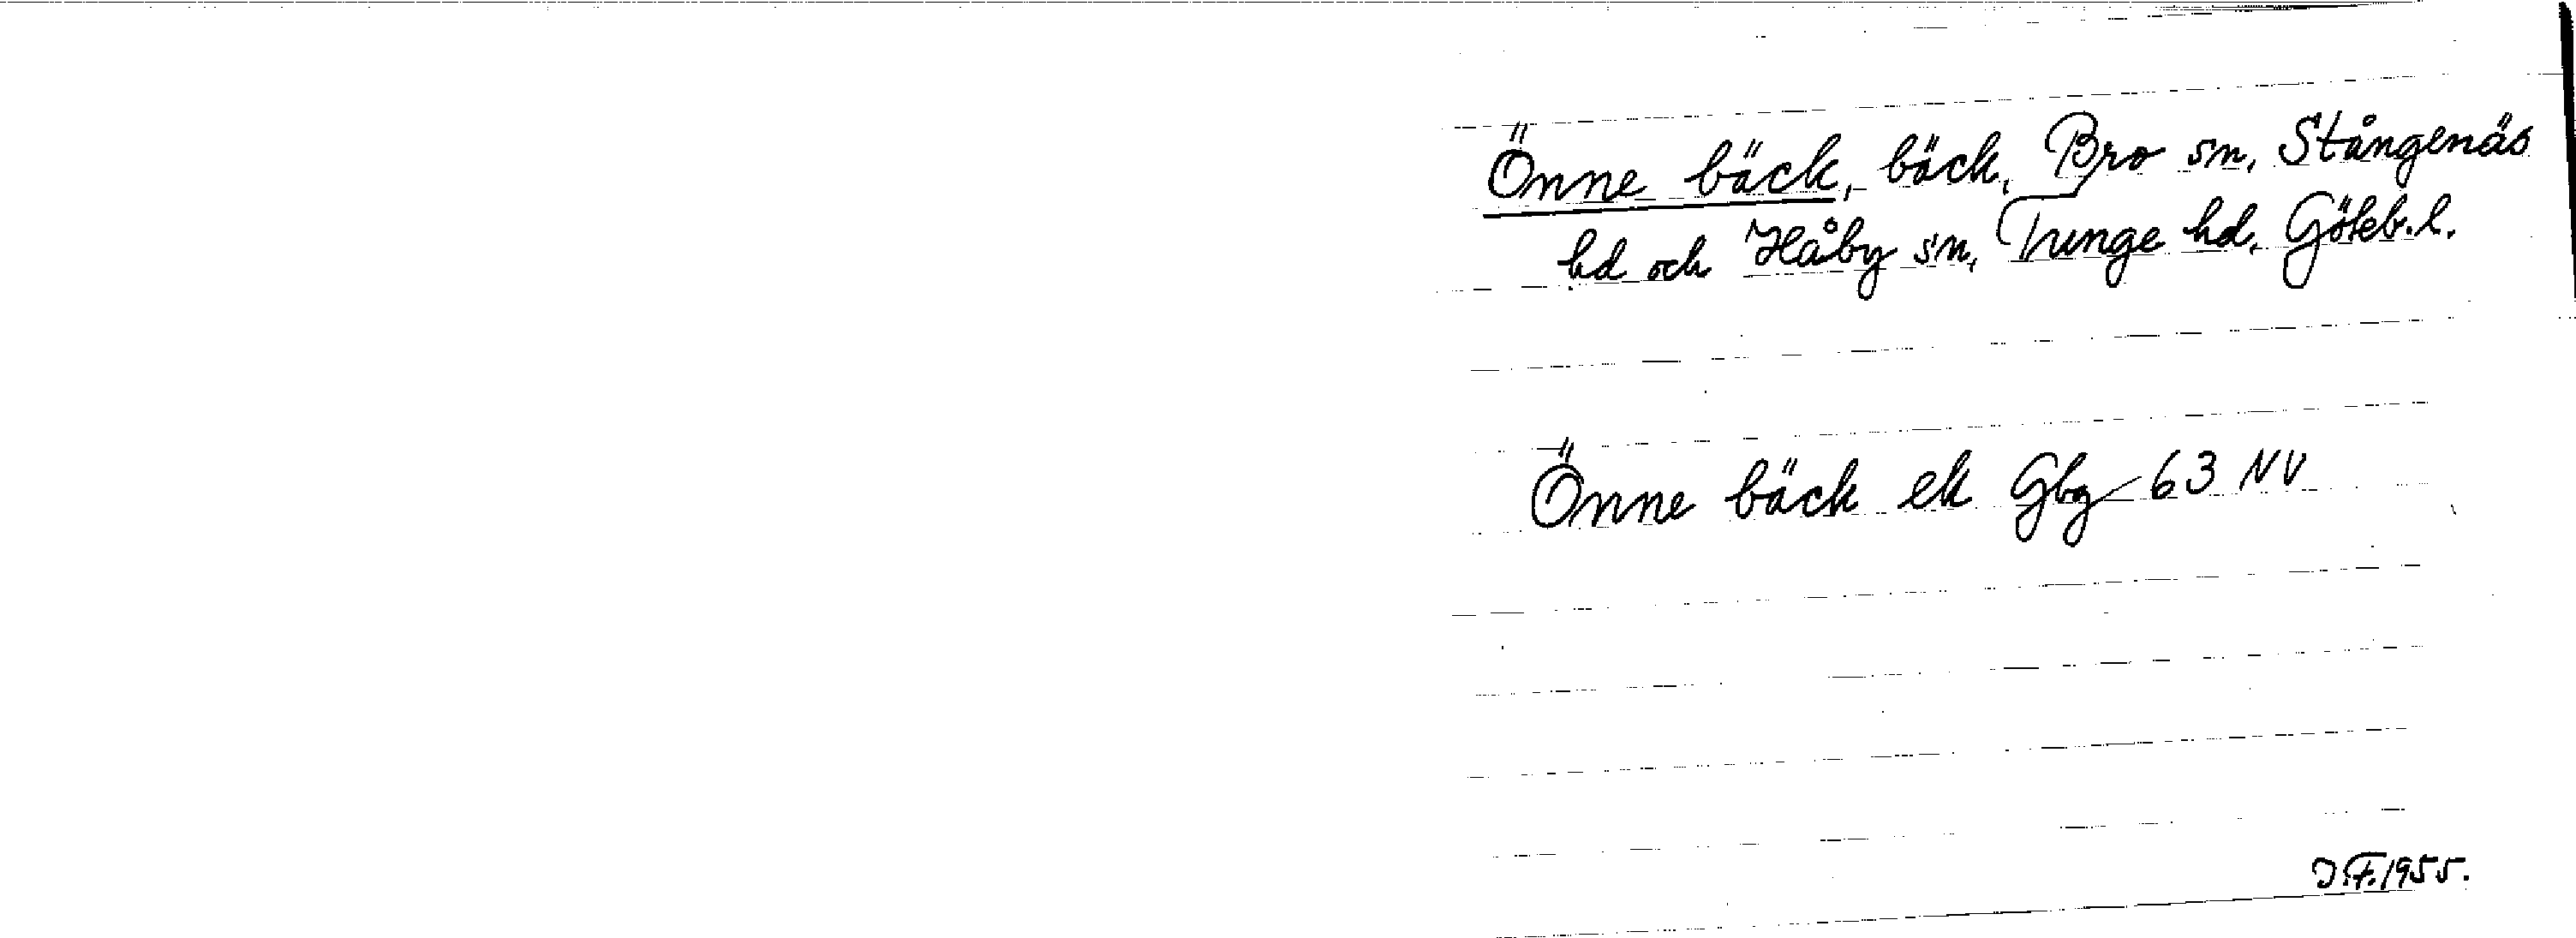 Önne bäck, bäck, Bro sn, Stångenäs
hd och Håby sn, Tunge hd, Göteb. l.
Önne bäck ek Gbg 63 NV
J.F. 1955.